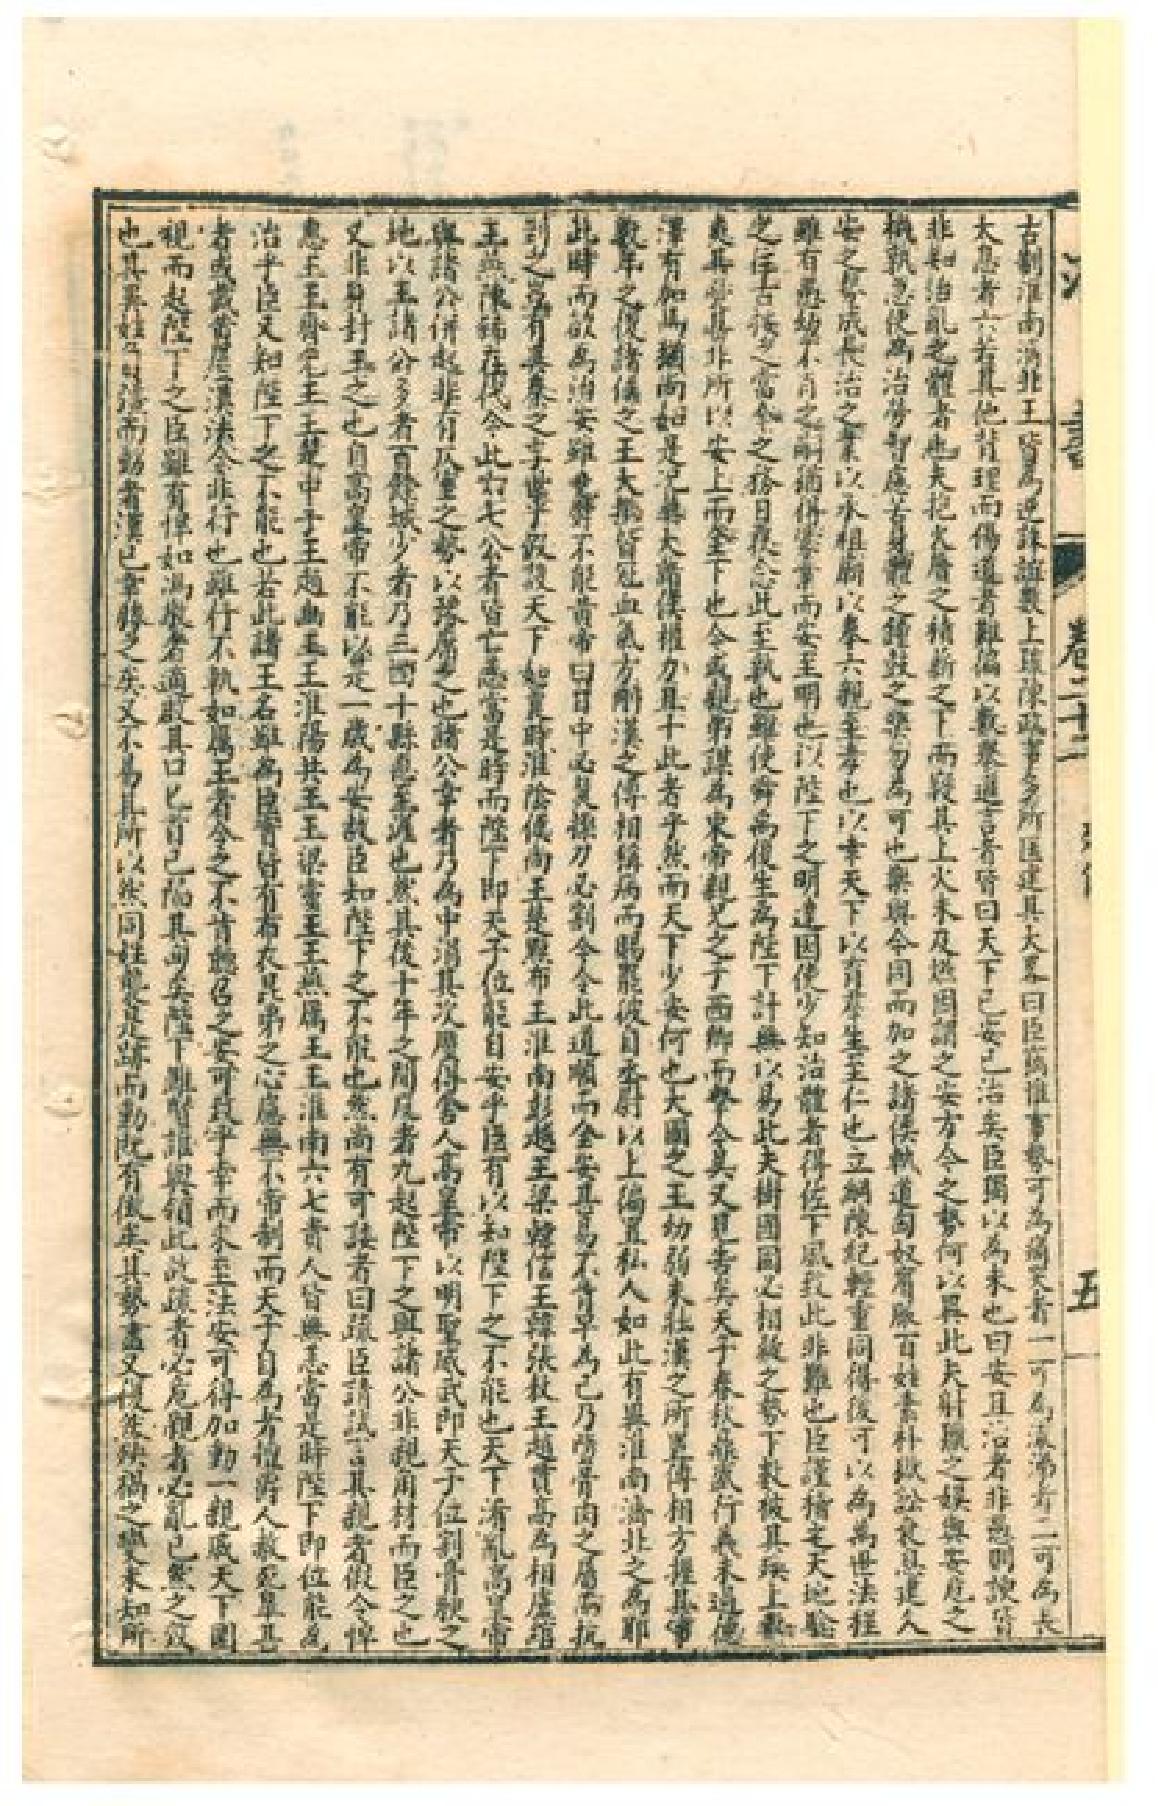 卷二十二
五
古制淮南濟北王皆為逆誅誼數上疏陳政事多所匡建其大畧曰臣竊惟事勢可為痛哭者一可為流涕者二可為長
太息者六若其他背理而傷道者難徧以疏舉進言者皆曰天下已安已治矣臣獨以為未也曰安且治者非愚則諛皆
非知治亂之體者也夫抱火厝之積薪之下而寢其上火未及燃因謂之安方今之勢何以異此夫射獵之娛與安危之
機孰急使為治勞智慮苦身體乏鐘鼓之樂勿為可也樂與今同而加之諸侯軌道匈奴賓服百姓素朴獄訟衰息建久
安之勢成長治之業以承祖廟以奉六親至孝也以幸天下以育羣生至仁也立綱陳紀輕重同得後可以為萬世法程
雖有愚幼不肖之嗣猶得蒙業而安至明也以陛下之明達因使少知治體者得佐下風致此非難也臣謹稽之天地驗
之往古按之當今之務日夜念此至孰也雖使舜禹復生為陛下計無以易此夫樹國固必相疑之勢下數被其殃上數
爽其憂甚非所以安上而全下也今或親弟謀為東帝親兄之子西鄉而擊今吳又見告矣天子春秋鼎盛行義未過德
澤有加焉猶尚如是况莫大諸侯權力且十此者乎然而天下少安何也大國之王幼弱未壯漢之所置傅相方握其事
數年之後諸侯之王大抵皆冠血氣方剛漢之傅相稱病而賜罷彼自丞尉以上徧置私人如此有異淮南濟北之為耶
此時而欲為治安雖堯舜不能黃帝曰日中必熭操刀必割今令此道順而全安甚易不肯早為已乃墮骨肉之屬而抗
剄之豈有異秦之季世乎假設天下如曩時淮陰侯尚王楚黥布王淮南彭越王梁韓信王韓張敖王趙貫高為相盧綰
王燕陳豨在代令此六七公者皆亡恙當是時而陛下即天子位能自安乎臣有以知陛下之不能也天下淆亂高皇帝
與諸公併起非有仄室之勢以豫席之也諸公幸者乃為中涓其次廑得舍人高皇帝以明聖威武即天子位割膏腴之
地以王諸公多者百餘城少者乃三四十縣悳至渥也然其後十年之間反者九起陛下之與諸公非親角材而臣之也
又非身封王之也自高皇帝不能以是一歲為安故臣知陛下之不能也然尚有可諉者曰疏臣請試言其親者假令悼
惠王王齊元王王楚中子王趙幽王王淮陽共王王梁靈王王燕厲王王淮南六七貴人皆無恙當是時陛下即位能為
治乎臣又知陛下之不能也若此諸王名雖為臣實皆有布衣昆弟之心慮無不帝制而天子自為者擅爵人赦死辠甚
者或戴黃屋漢法令非行也雖行不軌如厲王者令之不肯聽召之安可致乎幸而來至法安可得加動一親戚天下圜
視而起陛下之臣雖有悍如馮敬者適啟其口匕首已陷其胸矣陛下雖賢誰與領此故疏者必危親者必亂已然之效
也其異姓負彊而動者漢已幸勝之矣又不易其所以然同姓襲是跡而動既有徵矣其勢盡又復然殃禍之變未知所